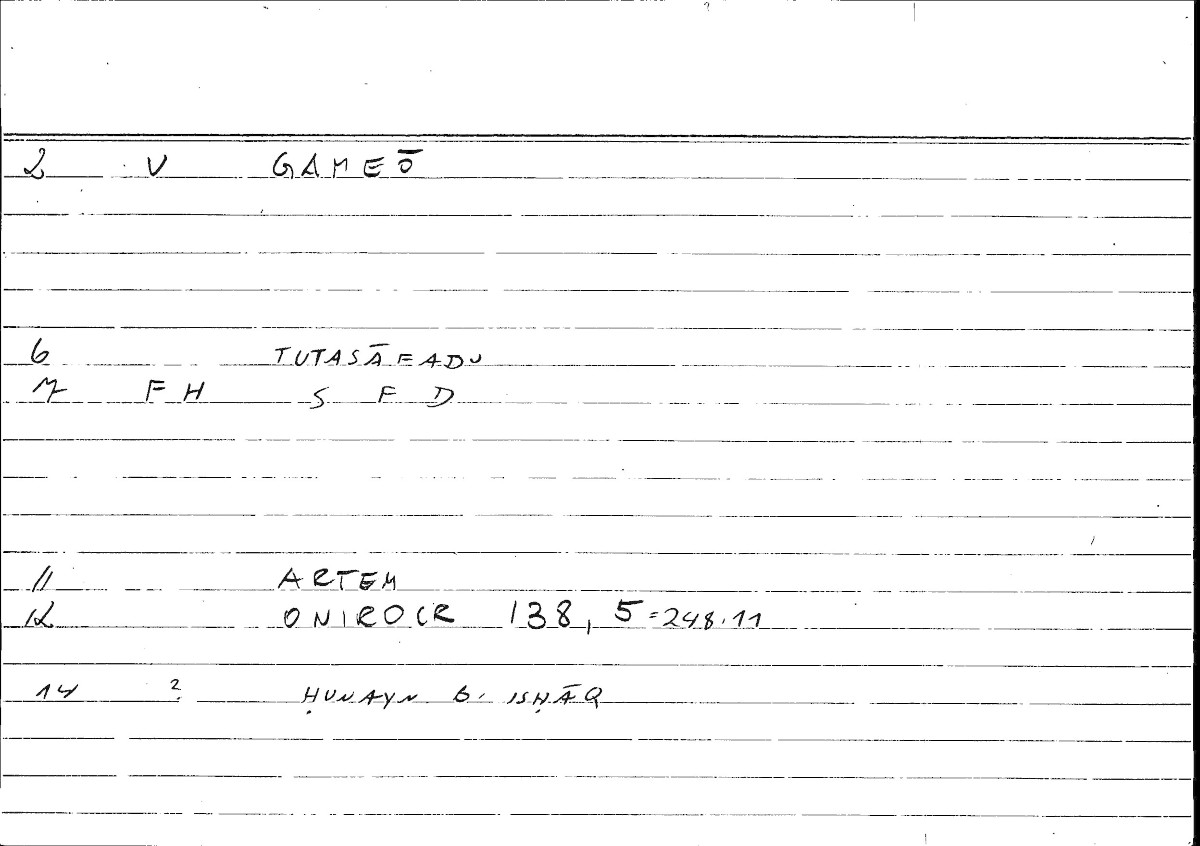 2 V GAMEŌ
6 TUTASĀFADU
7 FH S F D
11 ARTEM
12 ONIROCR 138, 5 = 248.11
14 ? ḤUNAYN B. ISḤĀQ